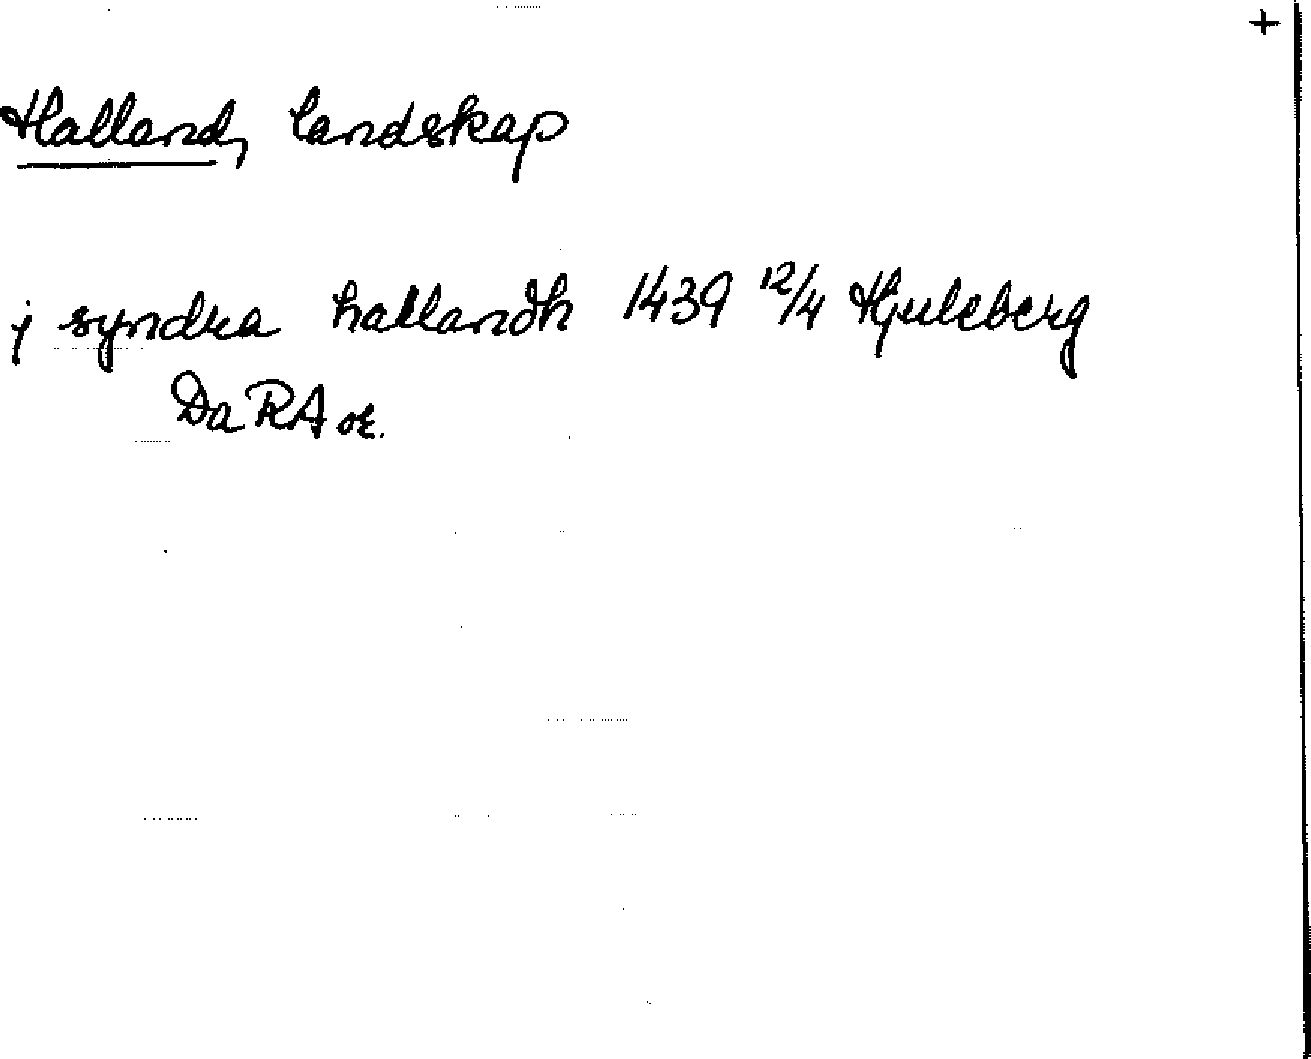 +
Halland, landskap
j syndra hallandh 1439 12/4 Hjuleberg
DaRA or.